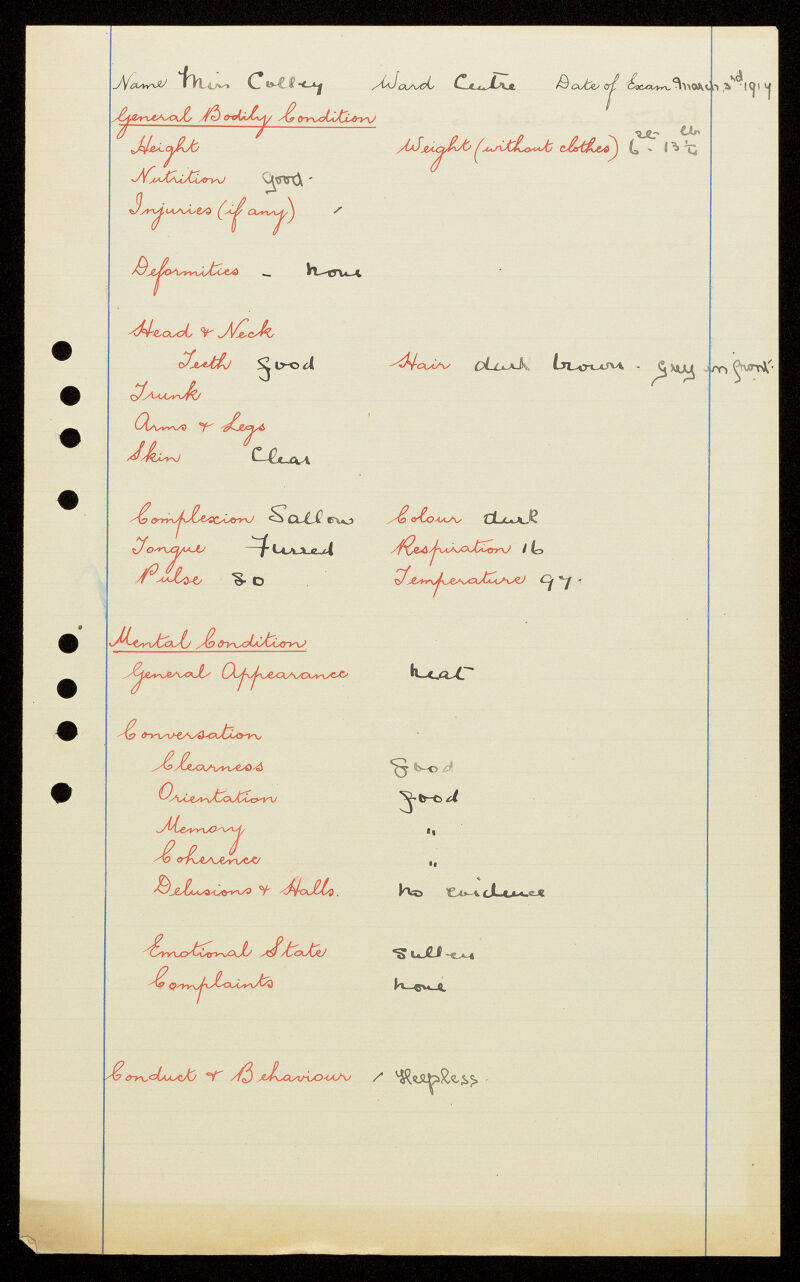 Name Miss Colley Ward Centre Date of Exam March 3rd 1917
General Bodily Condition
Height Weight (without clothes) 6 st - 13 1/4 lb
Nutrition Good.
Injuries (if any) /
Deformities - None
Head & Neck
Teeth good Hair dark brown. Grey in front.
Trunk
Arms & Legs
Skin Clear
Complexion Sallow Colour dark
Tongue Furred Respiration 16
Pulse 80 Temperature 97.
Mental Condition
General Appearance Neat
Conversation
Clearness Good
Orientation good
Memory "
Coherence "
Delusions & Halls. No evidence
Emotional State Sullen
Complaints None
Conduct & Behaviour / Helpless.